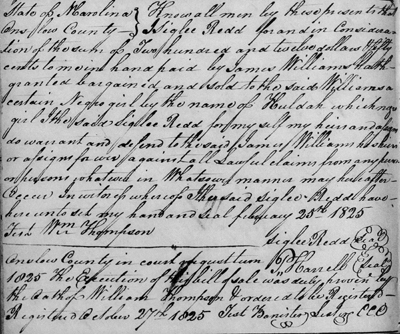 State of N Carolina } Know all men by these presents that I
Onslow County — } Siglee Redd for and in Consideration
of the sum of Two hundred and twelve dollars & fifty
cents to me in hand paid by James Williams hath
granted bargained and sold to the said Williams a
certain Negro girl by the name of Huldah which negro
girl I the said Siglee Redd for my self my heirs and assigns
do warrant and defend to the said James Williams his heirs
or assigns forever against all Lawful claims from any person
or persons whatever in Whatsoever manner may hereafter
Occur In witness whereof I the said Siglee Redd have
hereunto set my hand and seal february 23rd 1825
Test Wm Thompson
Siglee Redd (Seal)
Harrell (Seal)
Onslow County in court august turm
1825 The Execution of this bill of sale was duly proven by
the Oath of William Thompson & ordered to be Registerd —
Registered October 27th 1825 Test